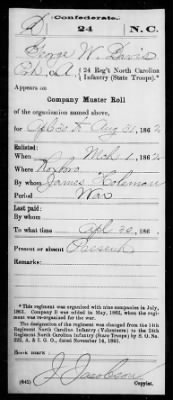 Confederate.
D 24 N.C.
George W. Davis
Co. A, 24 Reg't North Carolina
Infantry (State Troops).*
Appears on
Company Muster Roll
of the organization named above,
for Apl 30 to Aug 31, 1862
Enlisted:
When Mch 1, 1862
Where Roxboro
By whom James Holeman
Period War
Last paid:
By whom
To what time Apl 30, 186
Present or absent Present
Remarks:
*This regiment was organized with nine companies in July,
1861. Company K was added in May, 1862, when the regi-
ment was re-organized for the war.
The designation of the regiment was changed from the 14th
Regiment North Carolina Infantry (Volunteers) to the 24th
Regiment North Carolina Infantry (State Troops) by S. O. No.
222, A. & I. G. O., dated November 14, 1861.
Book mark:
J. Jacobson
(642) Copyist.